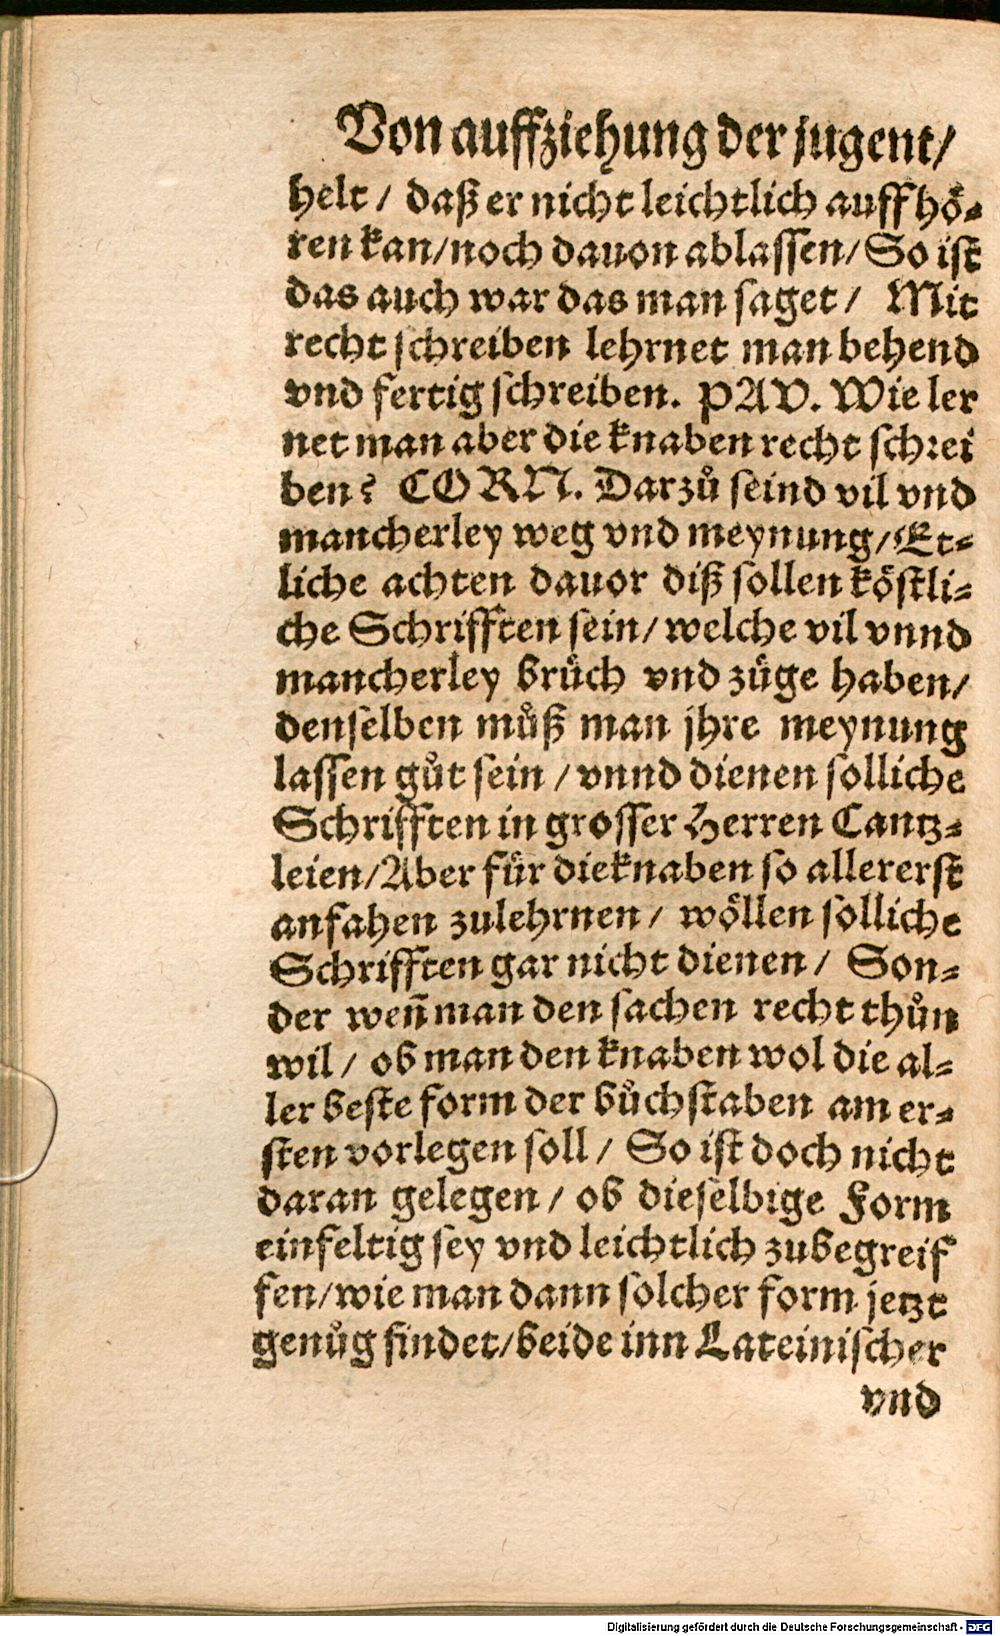 Von auffziehung der jugent/
helt / daß er nicht leichtlich auffhoͤ⸗
ren kan/noch dauon ablassen/So ist
das auch war das man saget / Mit
recht schreiben lehrnet man behend
vnd fertig schreiben. PAV. Wie ler
net man aber die knaben recht schrei
ben? CORN. Darzuͦ seind vil vnd
mancherley weg vnd meynung/Et⸗
liche achten dauor diß sollen koͤstli⸗
che Schrifften sein/welche vil vnnd
mancherley bruͤch vnd zuͤge haben/
denselben muͦß man jhre meynung
lassen guͦt sein /vnnd dienen solliche
Schrifften in grosser Herren Cantz⸗
leien/Aber fuͤr dieknaben so allererst
anfahen zulehrnen/ woͤllen solliche
Schrifften gar nicht dienen/ Son⸗
der weñ man den sachen recht thuͦn
wil / ob man den knaben wol die al⸗
ler beste form der buͦchstaben am er⸗
sten vorlegen soll / So ist doch nicht
daran gelegen / ob dieselbige Form
einfeltig sey vnd leichtlich zubegreif
fen/wie man dann solcher form jetzt
genuͦg findet/beide inn Lateinischer
vnd
Digitalisierung gefördert durch die Deutsche Forschungsgemeinschaft - DFG